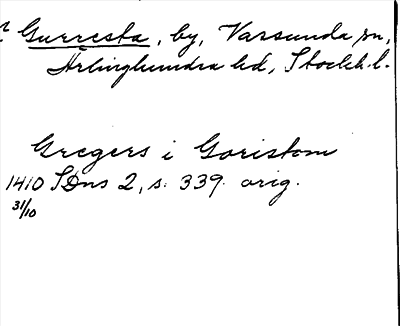 Gurresta, by, Vassunda sn,
Ärlinghundra hd, Stockh. l.
Gregers i Goristom
1410 SDns 2, s. 339. orig.
31/10